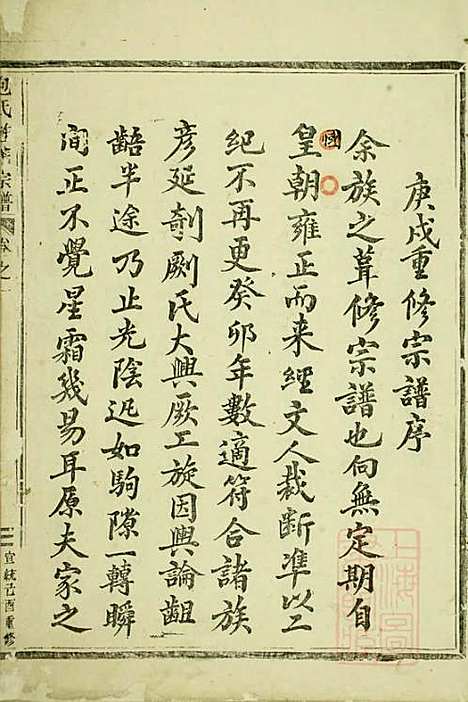 庚戌重修宗譜序
余族之葺修宗譜也向無定期自
皇朝雍正而來經文人裁斷準以二
紀不再更癸卯年數適符合諸族
彦延剞劂氏大興厥工旋因輿論齟
齬半途乃止光陰迅如駒隙一轉瞬
間正不覺星霜幾易耳原夫家之
包氏
宗譜
卷之
宣統己酉重修
上海圖